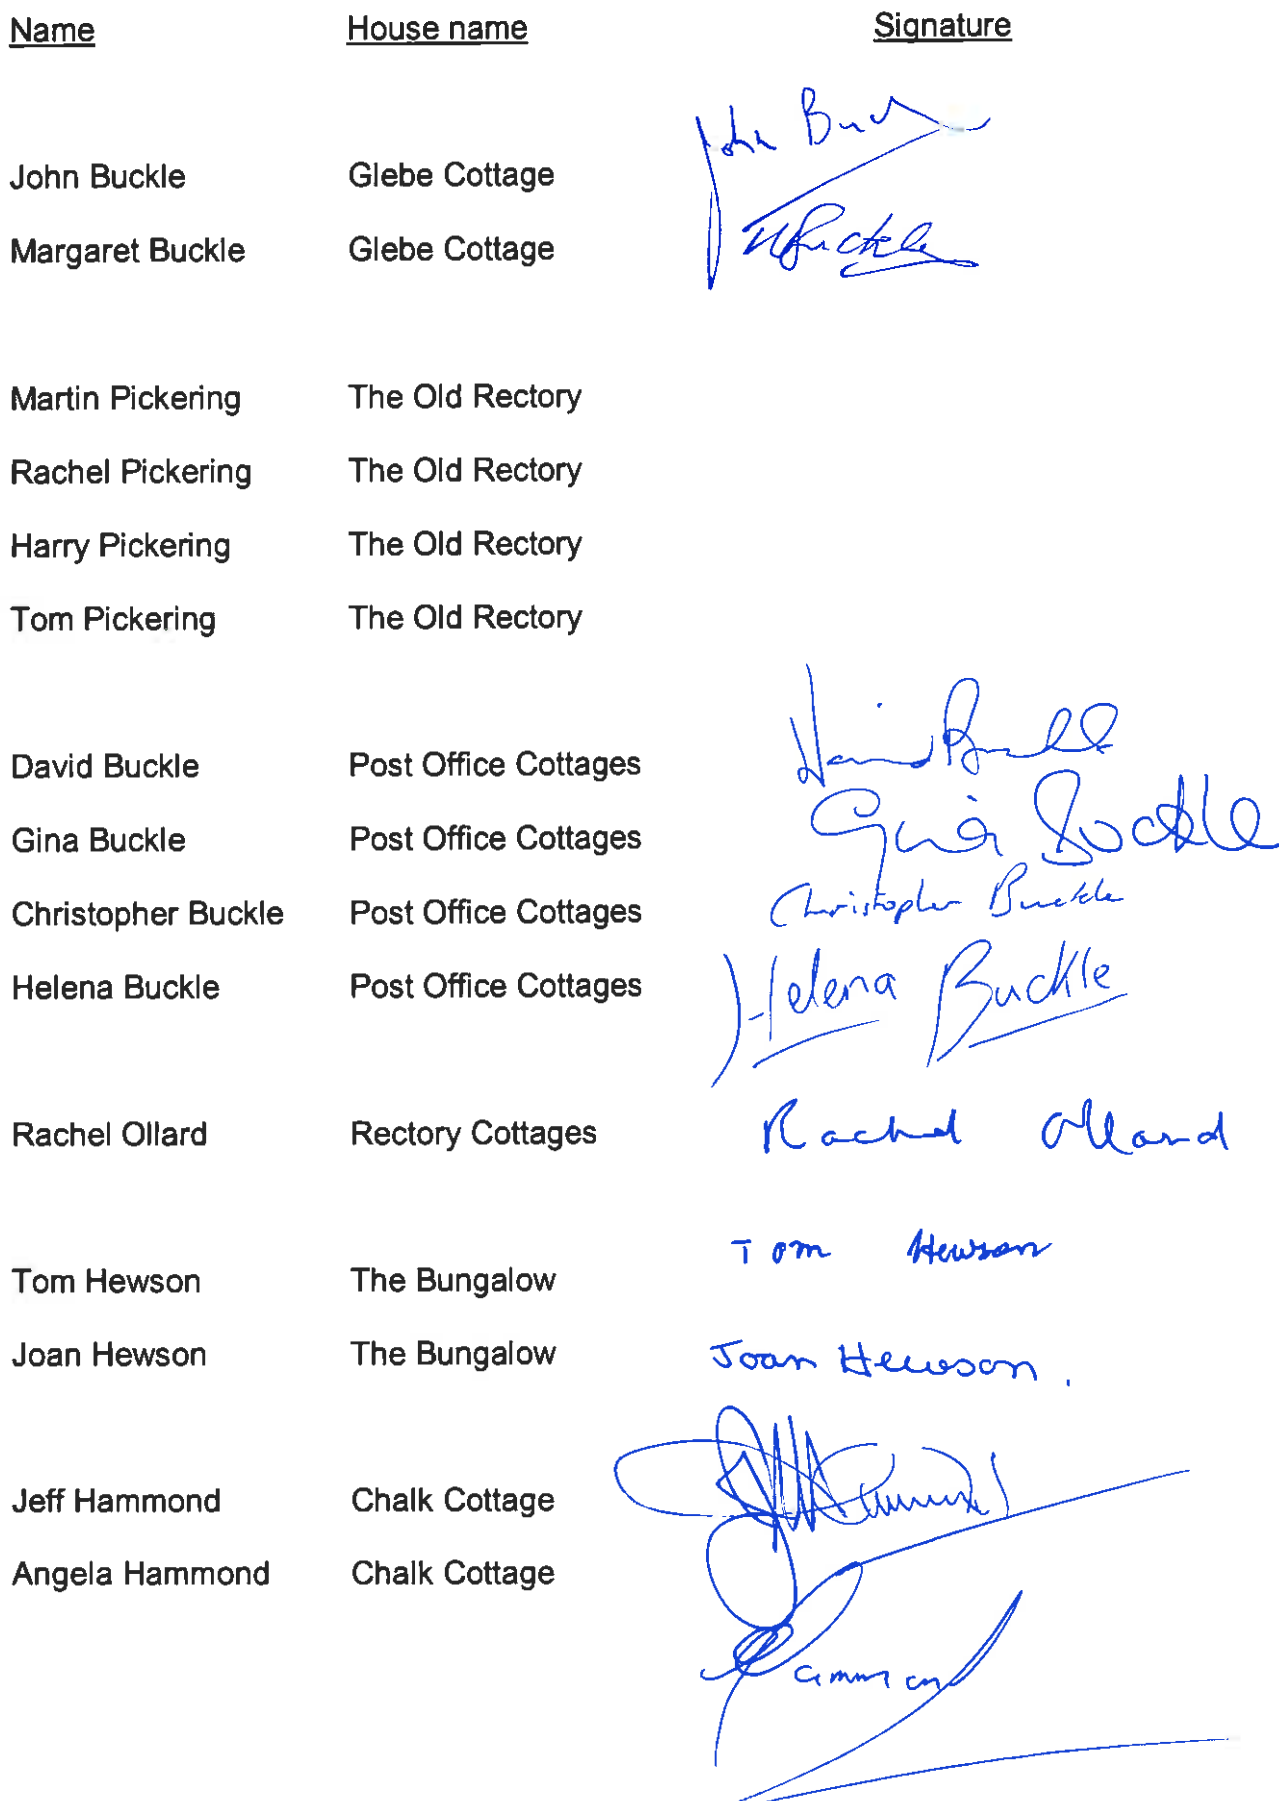 Name House name Signature
John Buck
John Buckle Glebe Cottage
Margaret Buckle Glebe Cottage MBuckle
Martin Pickering The Old Rectory
Rachel Pickering The Old Rectory
Harry Pickering The Old Rectory
Tom Pickering The Old Rectory
David Buckle Post Office Cottages David Buckle
Gina Buckle Post Office Cottages Gina Buckle
Christopher Buckle Post Office Cottages Christopher Buckle
Helena Buckle Post Office Cottages Helena Buckle
Rachel Ollard Rectory Cottages Rachel Ollard
Tom Hewson
Tom Hewson The Bungalow
Joan Hewson The Bungalow Joan Hewson.
Jeff Hammond Chalk Cottage
Angela Hammond Chalk Cottage